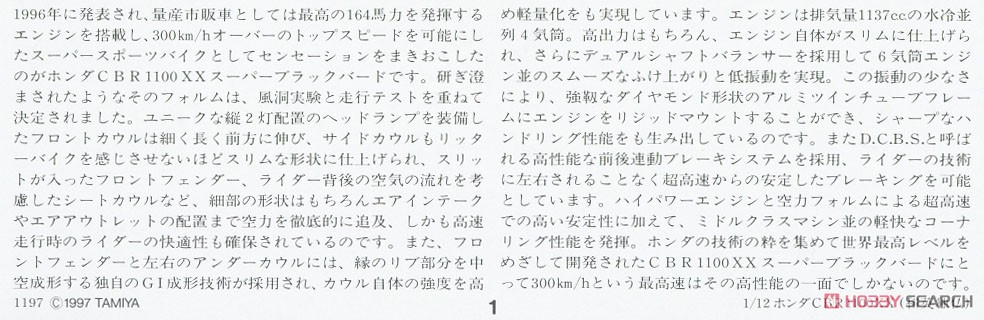 1996年に発表され、量産市販車としては最高の164馬力を発揮する
エンジンを搭載し、300km/hオーバーのトップスピードを可能にし
たスーパースポーツバイクとしてセンセーションをまきおこした
のがホンダCBR1100XXスーパーブラックバードです。研ぎ澄
まされたようなそのフォルムは、風洞実験と走行テストを重ねて
決定されました。ユニークな縦2灯配置のヘッドランプを装備し
たフロントカウルは細く長く前方に伸び、サイドカウルもリッタ
ーバイクを感じさせないほどスリムな形状に仕上げられ、スリッ
トが入ったフロントフェンダー、ライダー背後の空気の流れを考
慮したシートカウルなど、細部の形状はもちろんエアインテーク
やエアアウトレットの配置まで空力を徹底的に追及、しかも高速
走行時のライダーの快適性も確保されているのです。また、フロ
ントフェンダーと左右のアンダーカウルには、縁のリブ部分を中
空成形する独自のGI成形技術が採用され、カウル自体の強度を高
め軽量化をも実現しています。エンジンは排気量1137ccの水冷並
列4気筒。高出力はもちろん、エンジン自体がスリムに仕上げら
れ、さらにデュアルシャフトバランサーを採用して6気筒エンジ
ン並のスムーズなふけ上がりと低振動を実現。この振動の少なさ
により、強靱なダイヤモンド形状のアルミツインチューブフレー
ムにエンジンをリジッドマウントすることができ、シャープなハ
ンドリング性能をも生み出しているのです。またD.C.B.S.と呼ば
れる高性能な前後連動ブレーキシステムを採用、ライダーの技術
に左右されることなく超高速からの安定したブレーキングを可能
としています。ハイパワーエンジンと空力フォルムによる超高速
での高い安定性に加えて、ミドルクラスマシン並の軽快なコーナ
リング性能を発揮。ホンダの技術の粋を集めて世界最高レベルを
めざして開発されたCBR1100XXスーパーブラックバードにと
って300km/hという最高速はその高性能の一面でしかないのです。
1197 ©1997 TAMIYA
1
1/12 ホンダCBR
HOBBY SEARCH